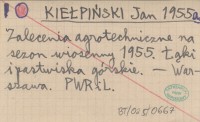 KIEŁPIŃSKI Jan 1955a
Zalecenia agrotechniczne na
sezon wiosenny 1955. Łąki
i pastwiska górskie. — War-
szawa. PWRiL.
BT/0450667